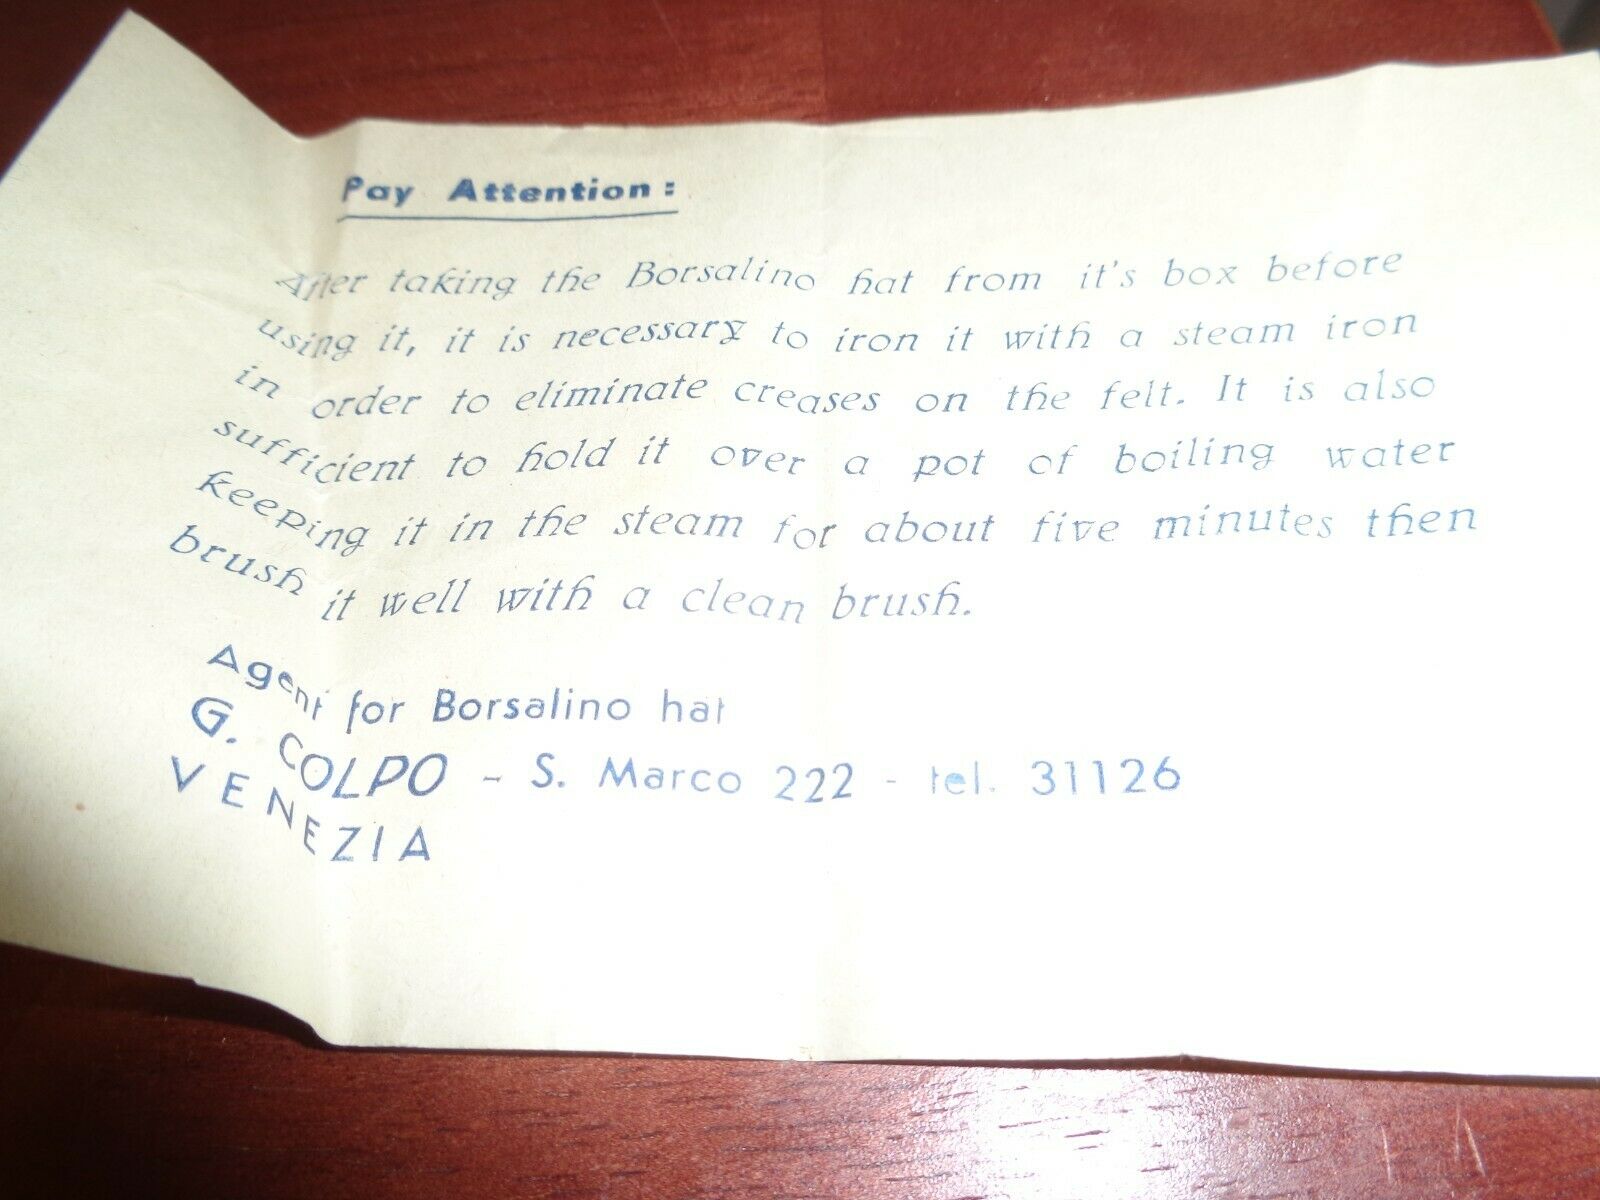 Pay Attention:
After taking the Borsalino hat from it's box before
using it, it is necessary to iron it with a steam iron
in order to eliminate creases on the felt. It is also
sufficient to hold it over a pot of boiling water
keeping it in the steam for about five minutes then
brush it well with a clean brush.
Agent for Borsalino hat
G. COLPO - S. Marco 222 - tel. 31126
VENEZIA